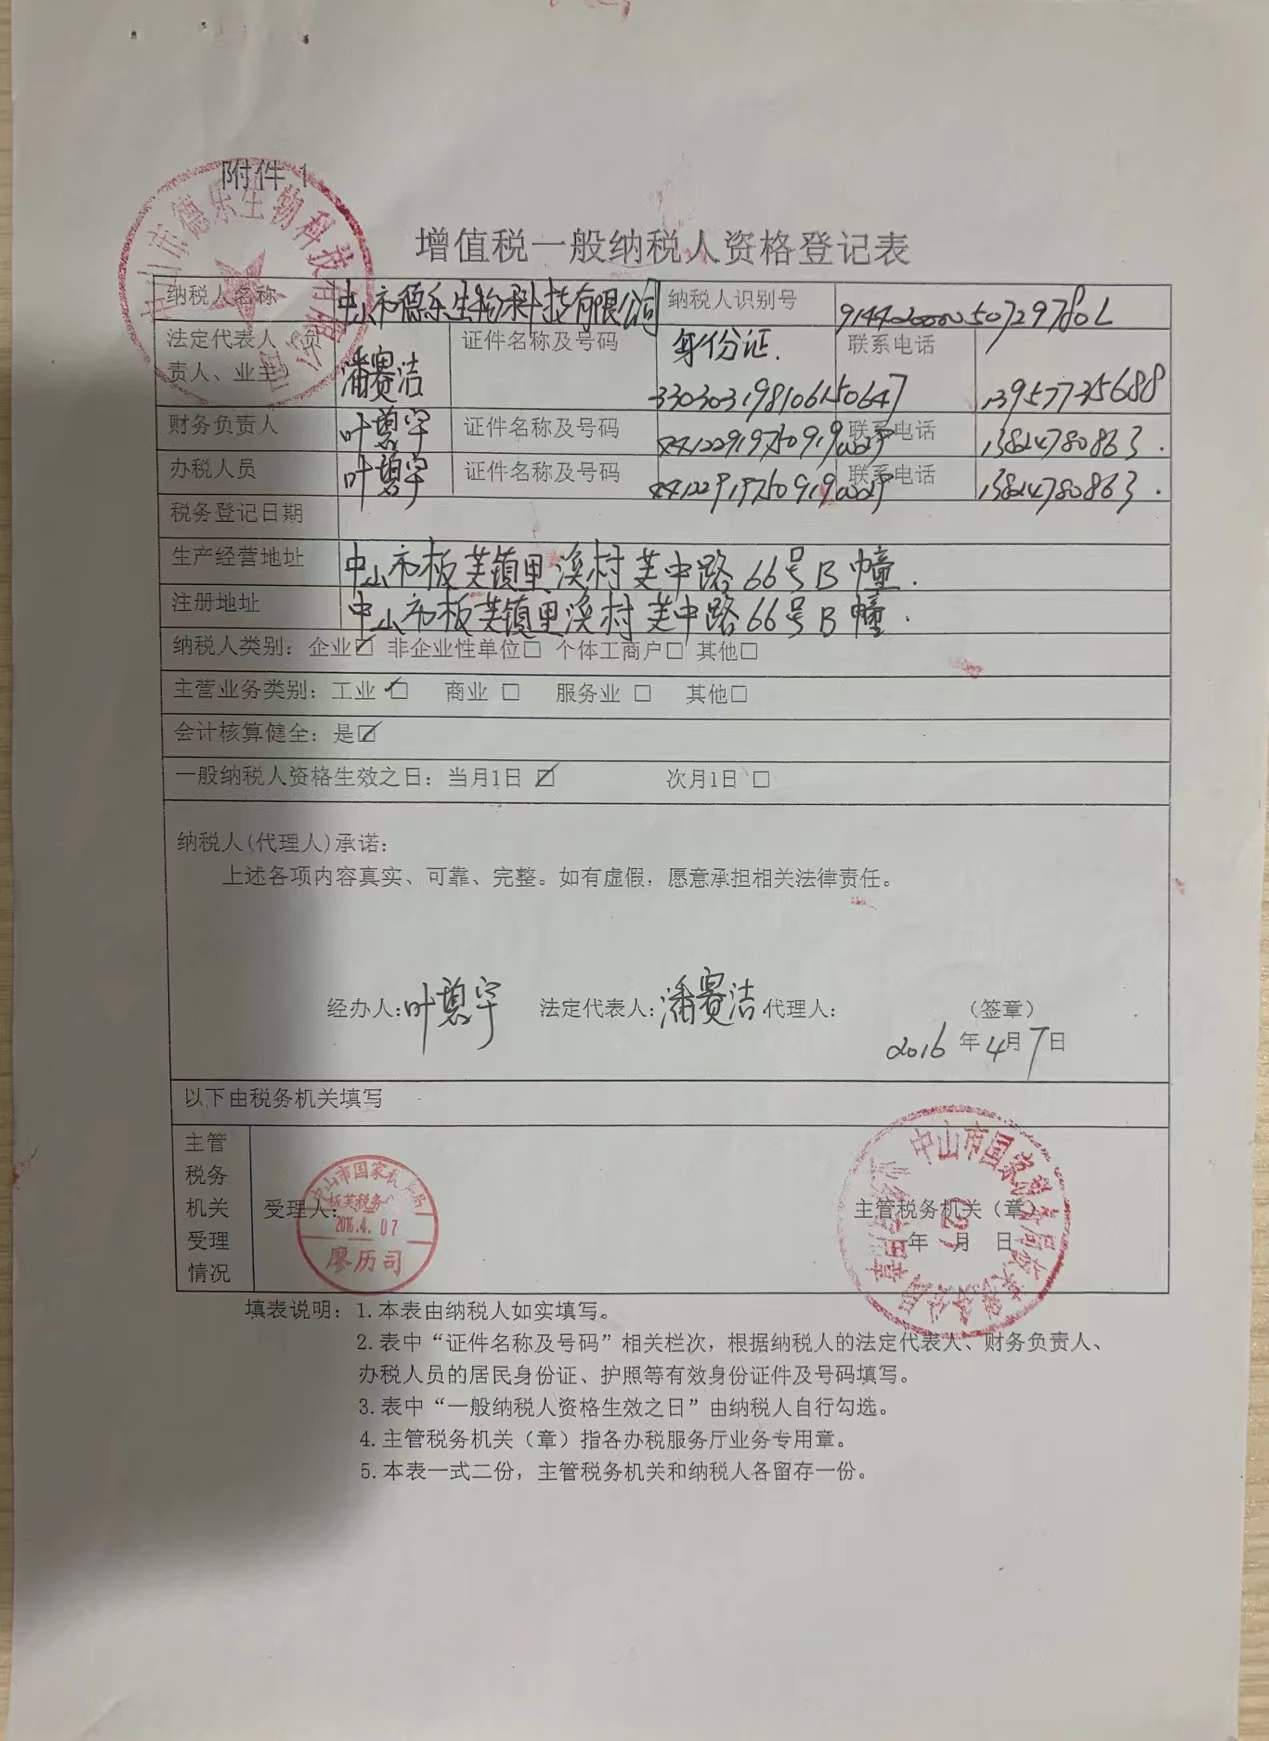 附件 1
中山市德乐生物科技有限公司
增值税一般纳税人资格登记表
纳税人名称 中山市德乐生物科技有限公司 纳税人识别号
法定代表人（负责人、业主） 潘赛洁 证件名称及号码 身份证. 330303198106150647 联系电话 13957735688
财务负责人 叶碧宇 证件名称及号码 联系电话 13824780863.
办税人员 叶碧宇 证件名称及号码 联系电话 13824780863.
税务登记日期
生产经营地址 中山市板芙镇里溪村芙中路66号B幢.
注册地址 中山市板芙镇里溪村芙中路66号B幢.
纳税人类别：企业☑ 非企业性单位□ 个体工商户□ 其他□
主营业务类别：工业☑ 商业□ 服务业□ 其他□
会计核算健全：是☑
一般纳税人资格生效之日：当月1日☑ 次月1日□
纳税人(代理人)承诺：
上述各项内容真实、可靠、完整。如有虚假，愿意承担相关法律责任。
经办人：叶碧宇 法定代表人：潘赛洁 代理人： （签章）
2016年4月7日
以下由税务机关填写
主管税务机关受理情况
受理人： 主管税务机关（章）
年 月 日
2016.4.07
廖历司
填表说明：1.本表由纳税人如实填写。
2.表中“证件名称及号码”相关栏次，根据纳税人的法定代表人、财务负责人、
办税人员的居民身份证、护照等有效身份证件及号码填写。
3.表中“一般纳税人资格生效之日”由纳税人自行勾选。
4.主管税务机关（章）指各办税服务厅业务专用章。
5.本表一式二份，主管税务机关和纳税人各留存一份。